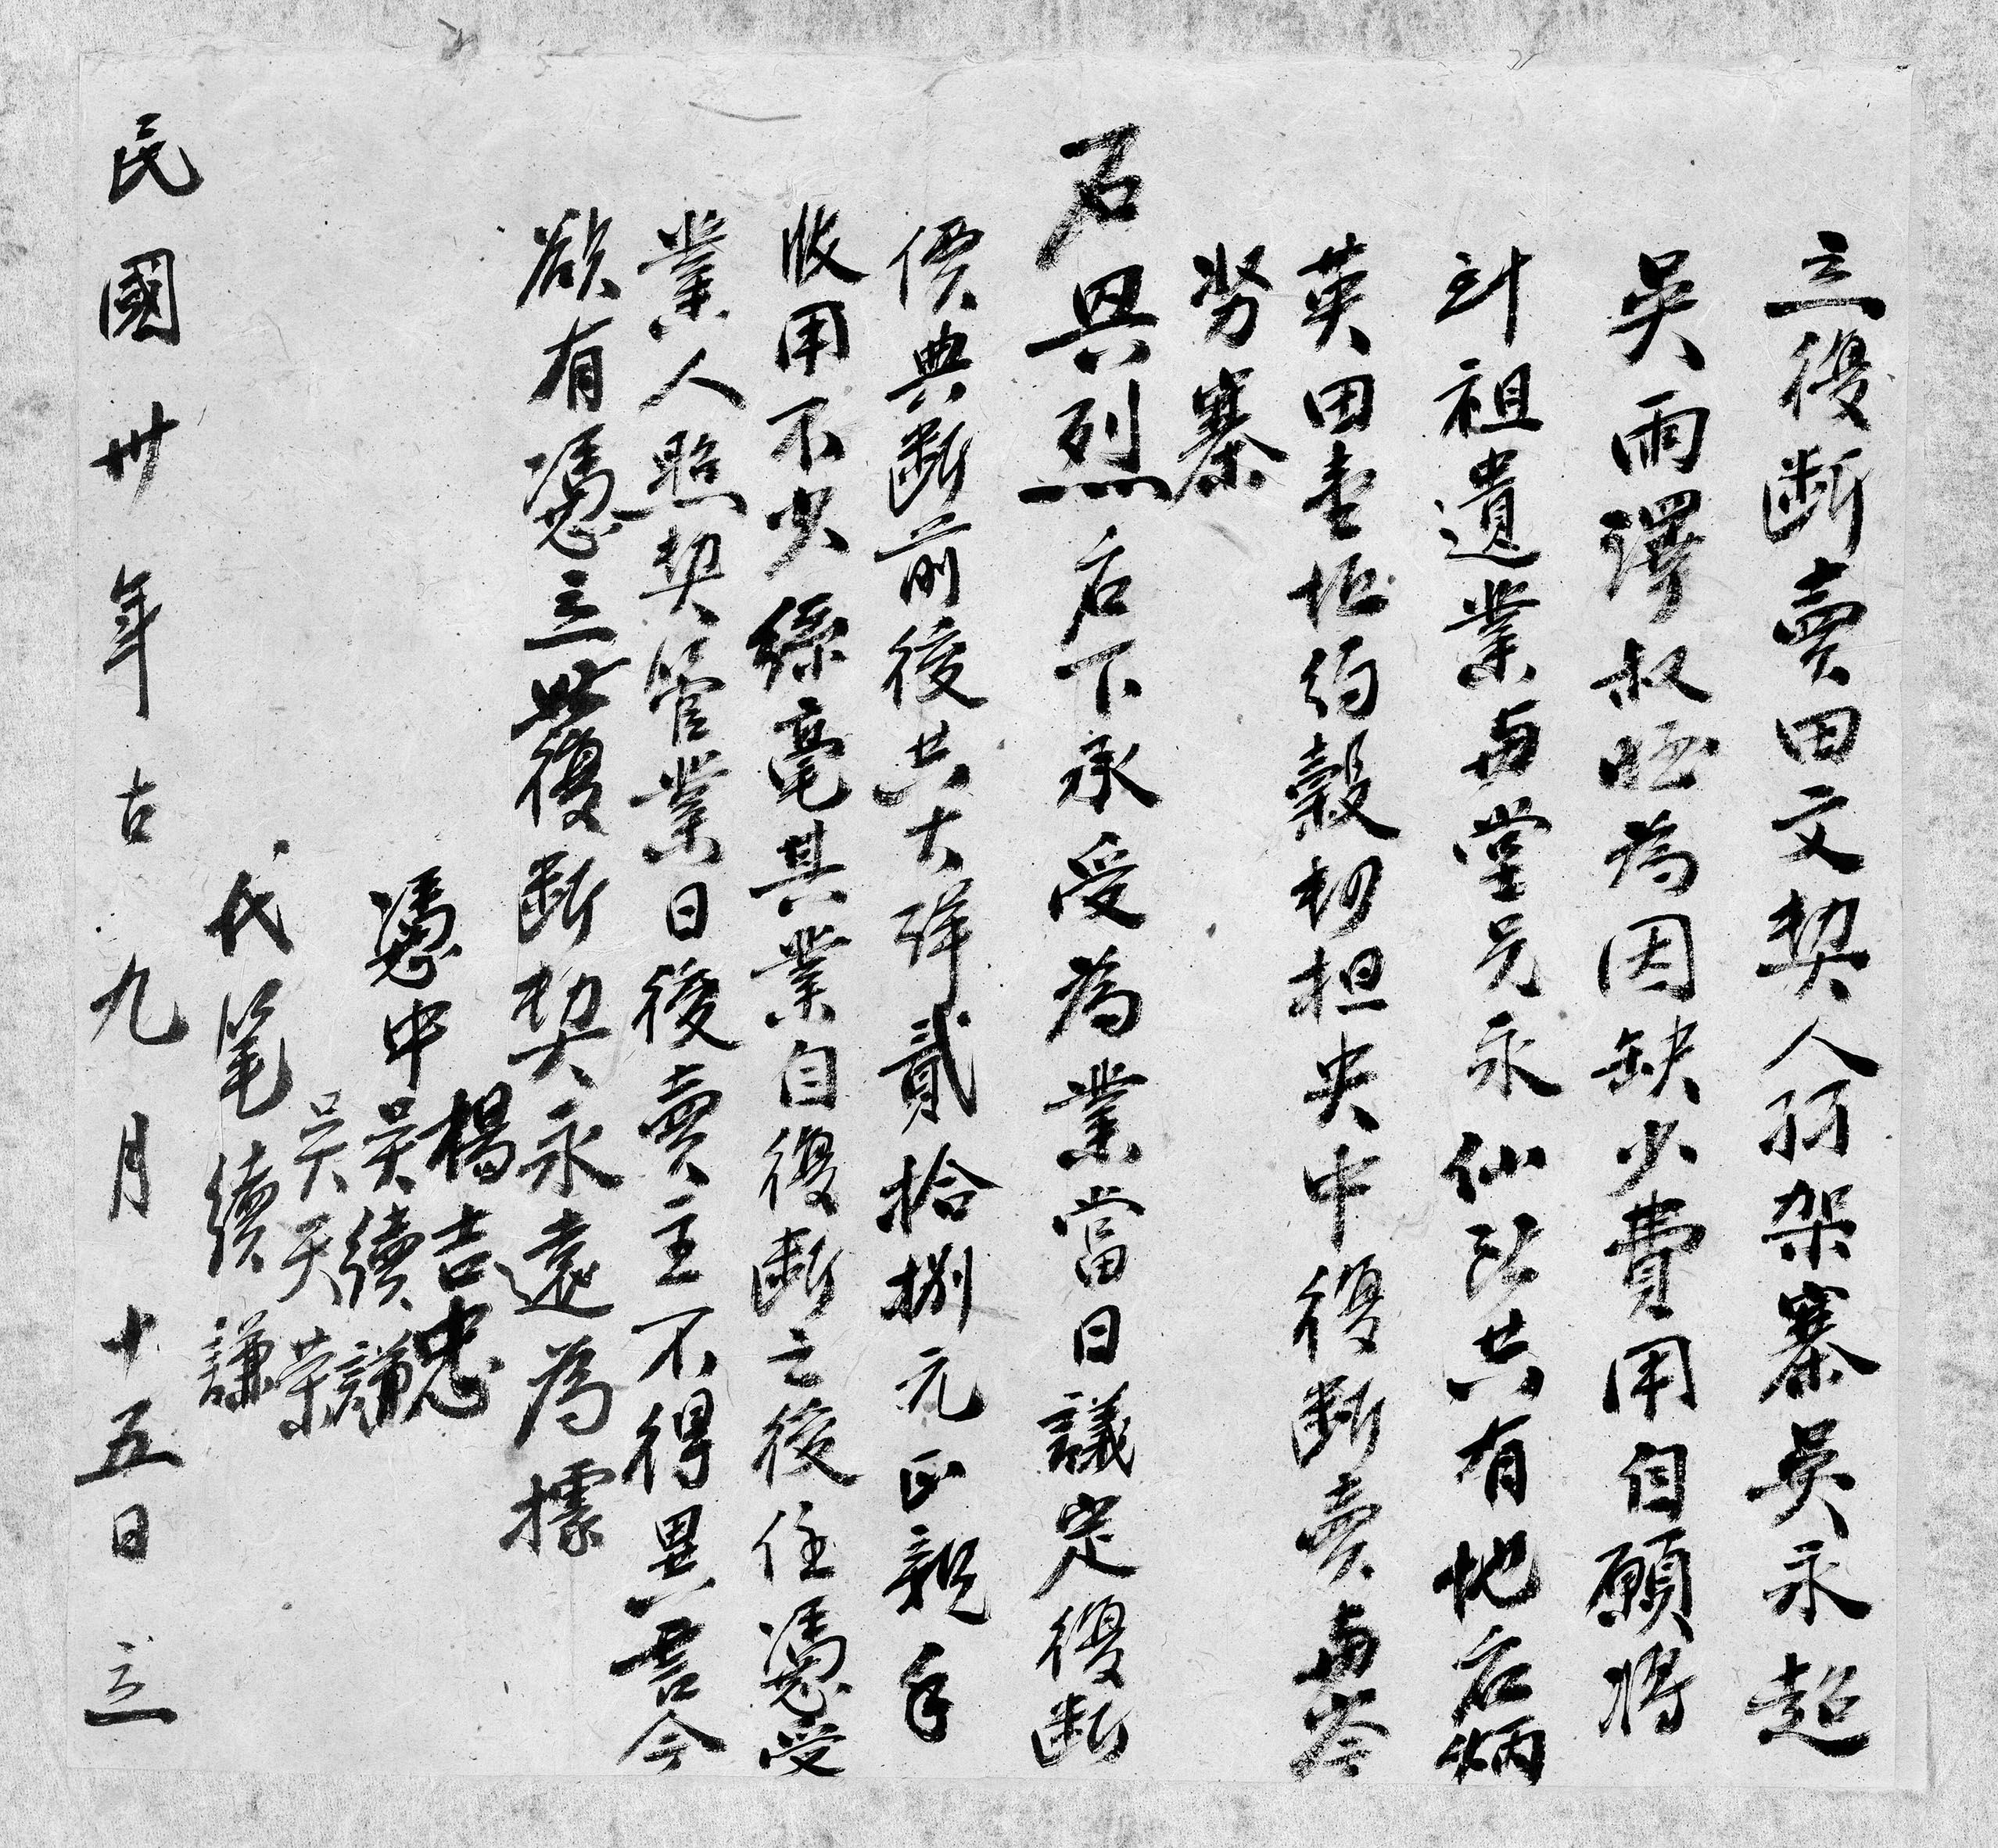 立復断賣田文契人孖架寨吳永超
吳雨澤叔姪為因缺少費用自願將
到祖遺業與堂兄永仙所共有地名炳
英田壹坵約穀初担央中復断賣與岑
努寨
石興烈名下承受為業當日議定復断
價典断前後共大洋貳拾捌元正親手
收用不少絲毫其業自復断之後任憑受
業人照契管業日後賣主不得異言今
欲有憑立此復断契永遠為據
楊吉忠
憑中吳續謙
吳天榮
代笔續謙
民國卅年古九月十五日立